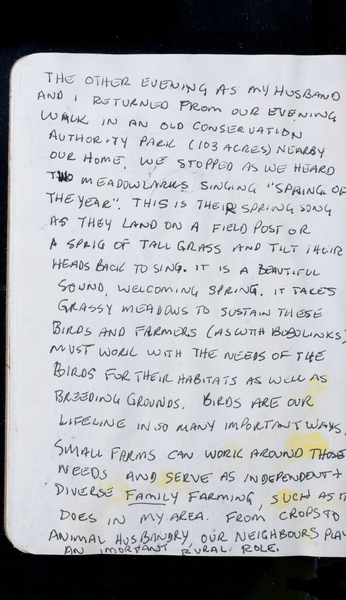 THE OTHER EVENING AS MY HUSBAND
AND I RETURNED FROM OUR EVENING
WALK IN AN OLD CONSERVATION
AUTHORITY PARK (103 ACRES) NEARBY
OUR HOME, WE STOPPED AS WE HEARD
TWO MEADOWLARKS SINGING "SPRING OF
THE YEAR". THIS IS THEIR SPRING SONG
AS THEY LAND ON A FIELD POST OR
A SPRIG OF TALL GRASS AND TILT THEIR
HEADS BACK TO SING. IT IS A BEAUTIFUL
SOUND, WELCOMING SPRING. IT TAKES
GRASSY MEADOWS TO SUSTAIN THESE
BIRDS AND FARMERS (AS WITH BOBOLINKS)
MUST WORK WITH THE NEEDS OF THE
BIRDS FOR THEIR HABITATS AS WELL AS
BREEDING GROUNDS. BIRDS ARE OUR
LIFELINE IN SO MANY IMPORTANT WAYS.
SMALL FARMS CAN WORK AROUND THOSE
NEEDS AND SERVE AS INDEPENDENT +
DIVERSE FAMILY FARMING, SUCH AS IT
DOES IN MY AREA. FROM CROPS TO
ANIMAL HUSBANDRY, OUR NEIGHBOURS PLAY
AN IMPORTANT RURAL ROLE.